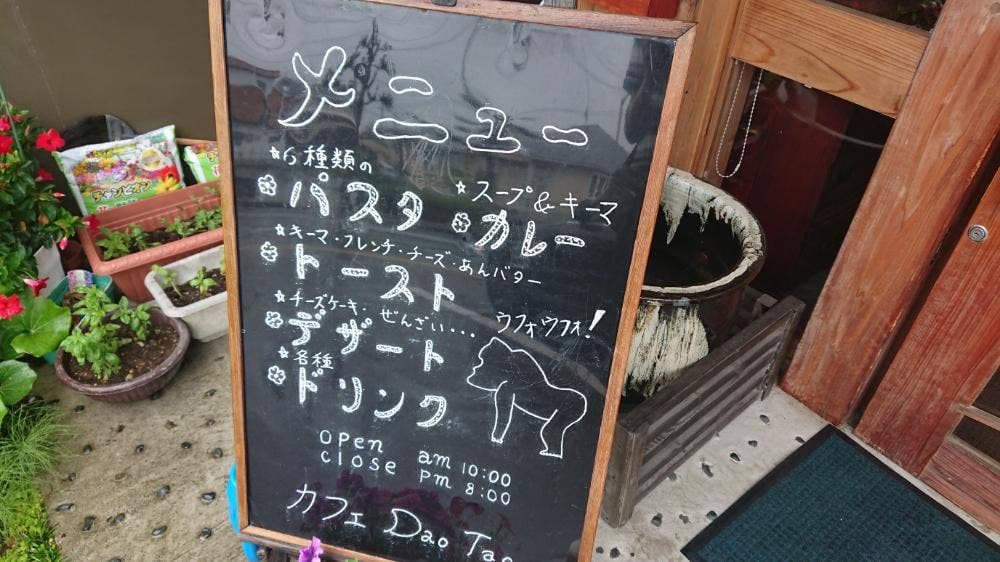 メニュー
☆6種類の
パスタ
☆スープ&キーマ
カレー
☆キーマ・フレンチ・チーズ・あんバター
トースト
☆チーズケーキ・ぜんざい・・・
デザート
ウフォウフォ!
☆各種
ドリンク
open am 10:00
close pm 8:00
カフェ Dao Tao
チャンピオン